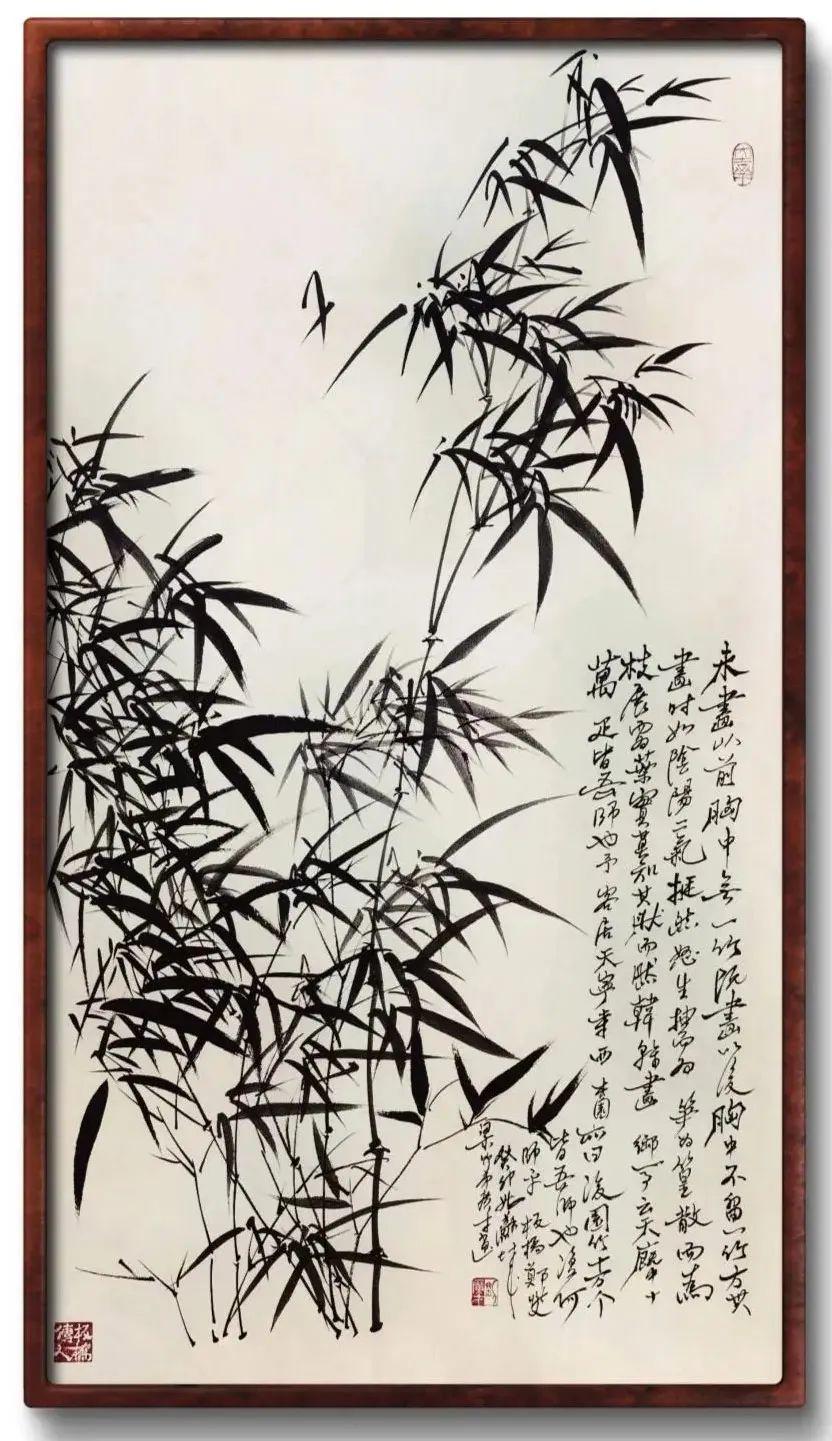 未畫以前胸中無一竹既畫以後胸中不留一竹方其
畫時如陰陽二氣挺然怒生抽為笋為篁散而為
枝展為葉實莫知其然而然韓幹畫御馬云天廄中十
萬疋皆吾師也予客居天寧寺西杏園亦曰後園竹十萬个
皆吾師也復何
師乎板橋鄭燮
癸卯
板橋傳人